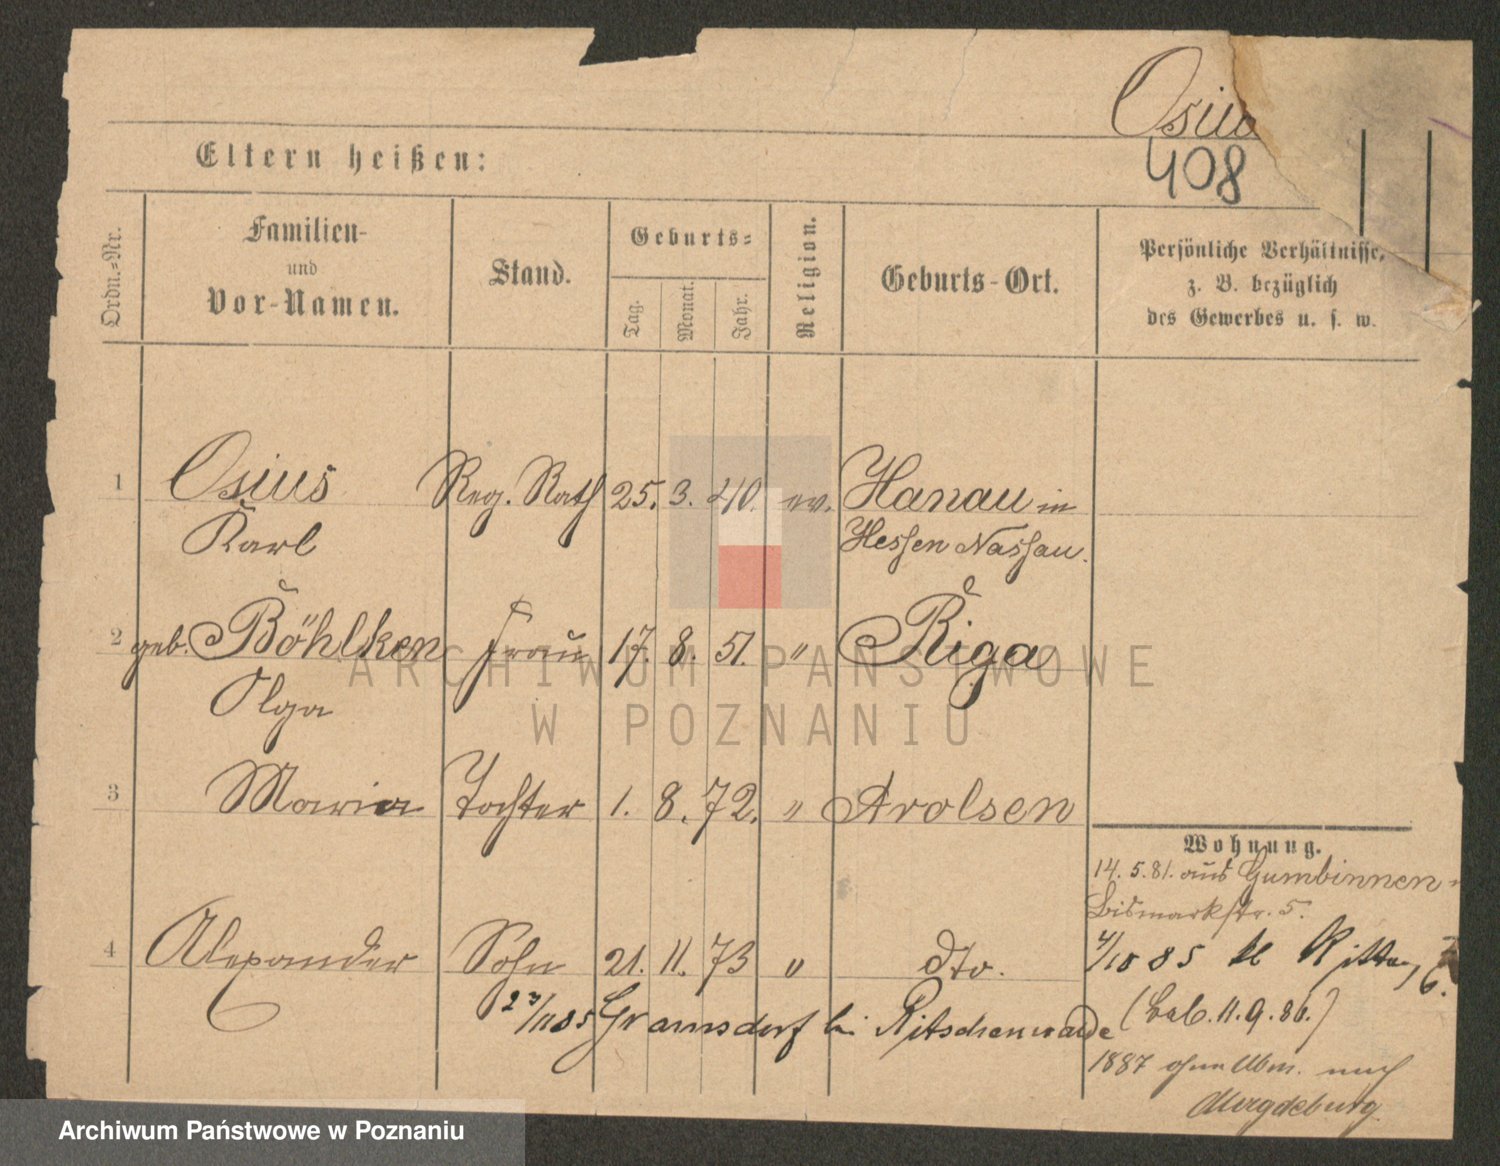 Osius
408
Eltern heißen:
Ordn.-Nr.
Familien-
und
Vor-Namen.
Stand.
Geburts-
Tag.
Monat.
Jahr.
Religion.
Geburts-Ort.
Persönliche Verhältnisse,
z. B. bezüglich
des Gewerbes u. s. w.
1 Osius Reg. Rath 25. 3. 40. ev. Hanau in
Karl Hessen Nassau.
2 geb. Böhlken Frau 17. 8. 51. " Riga
Olga
3 Maria Tochter 1. 8. 72. " Arolsen
4 Alexander Sohn 21. 11. 73 " dto.
23/11 85 Gramsdorf bei Ritschenwalde
Wohnung.
14. 5. 81. aus Gumbinnen
Bismarkstr. 5.
4/10 85 kl Ritter 6.
(11. 9. 86.)
1887 ohne Abm. nach
Magdeburg
ARCHIWUM PAŃSTWOWE
W POZNANIU
Archiwum Państwowe w Poznaniu